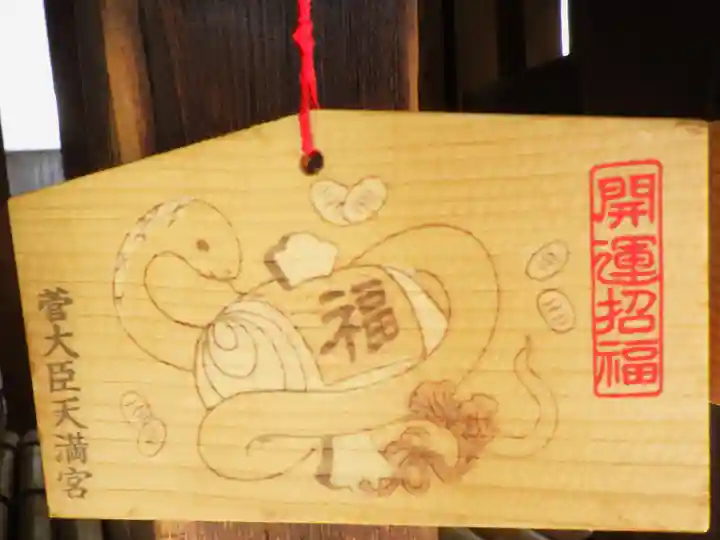 開運招福
福
菅大臣天満宮